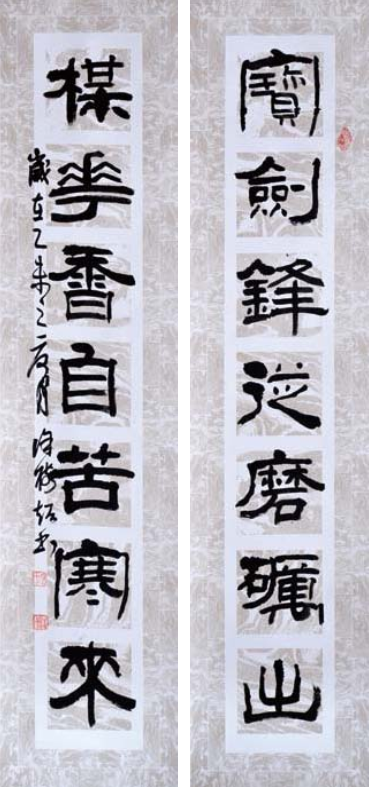 寶劍鋒從磨礪出
楳花香自苦寒來
歲在乙未之夏月